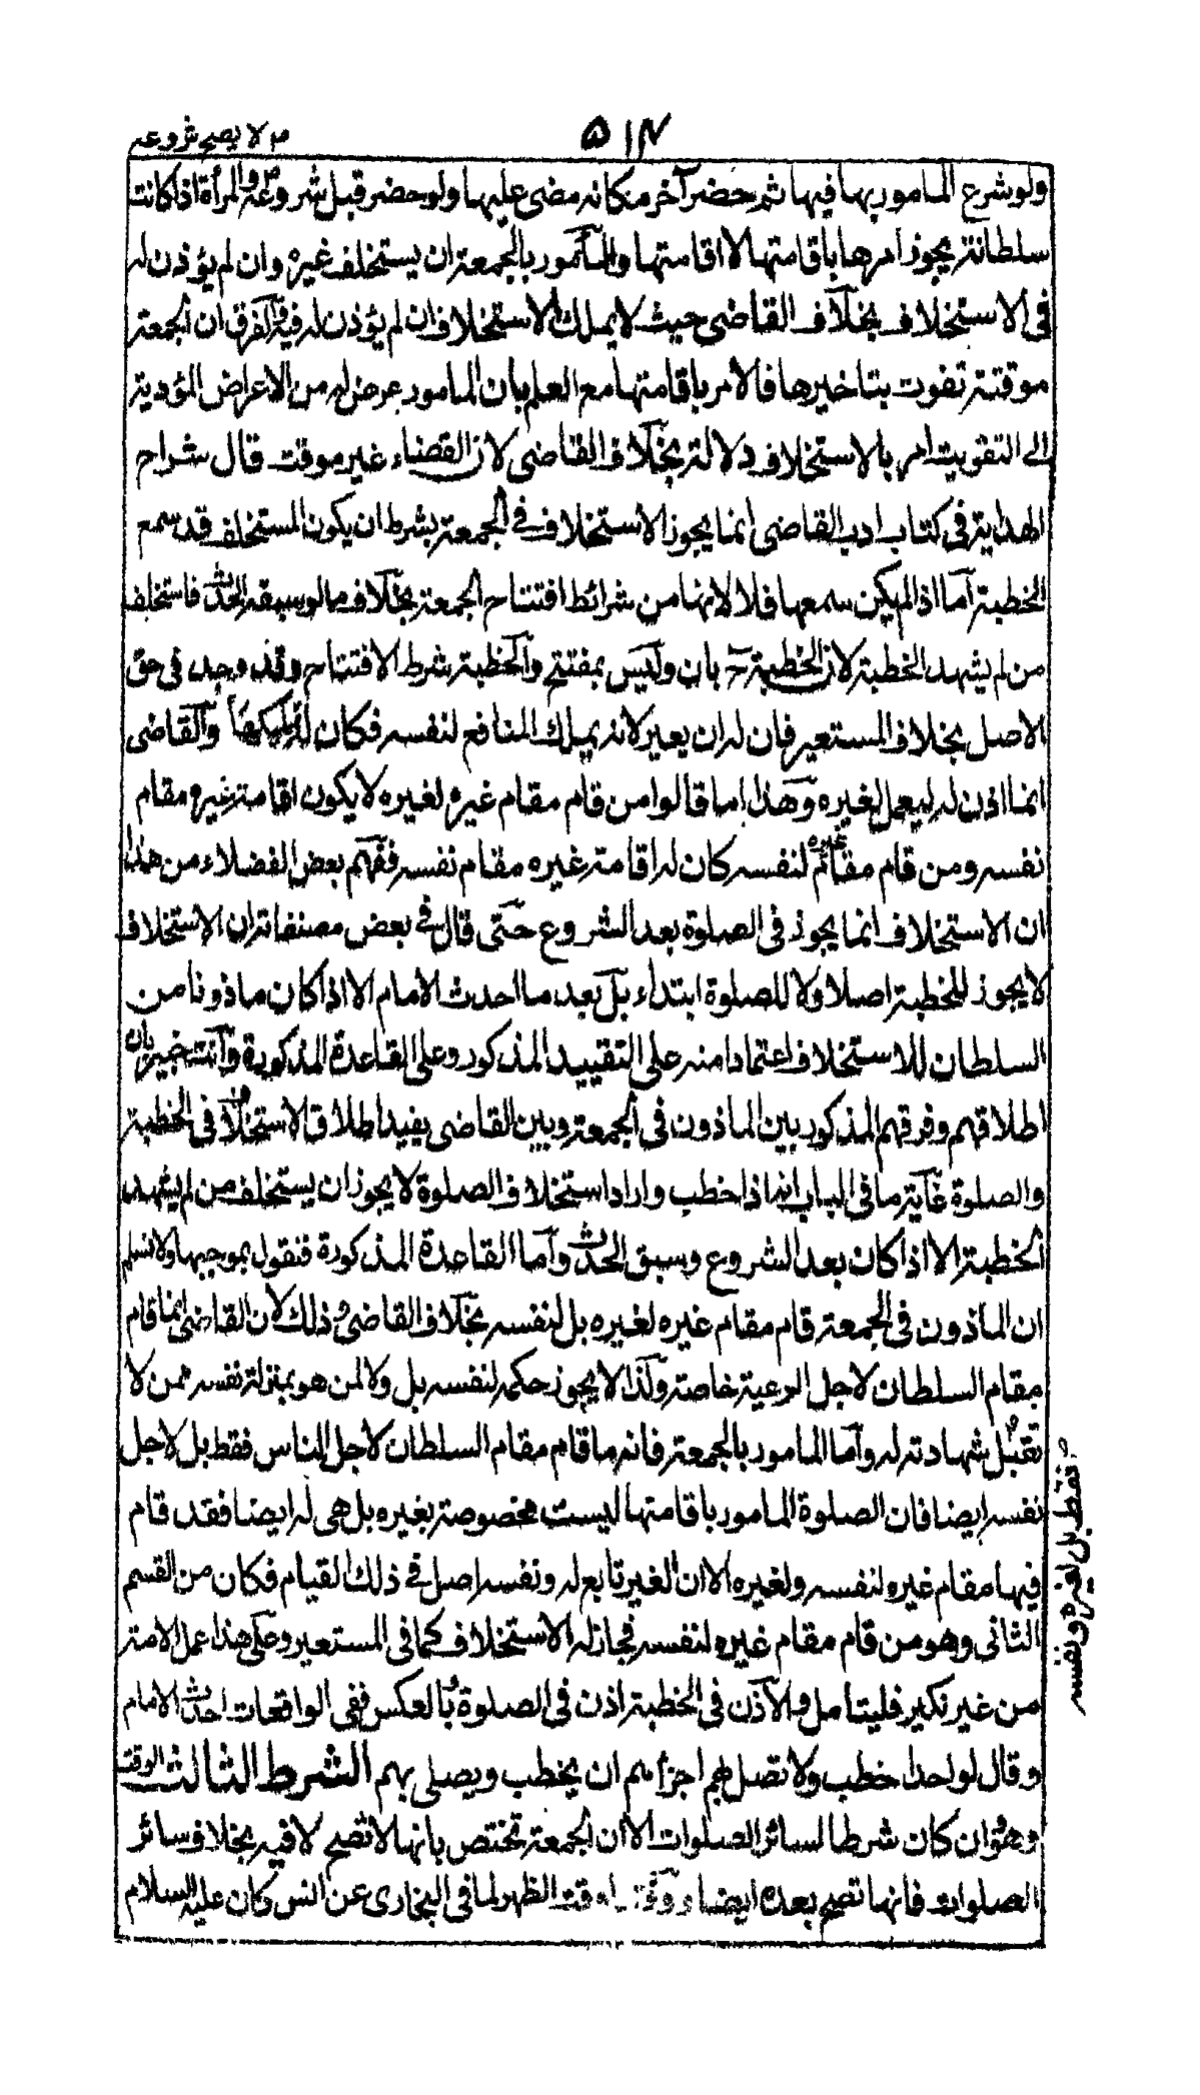 ٥١٤
م لا يصح شروعه
ولو شرع المامور بها فيها ثم حضر آخر مكانه مضى عليها ولو حضر قبل شروعه م والمرأة اذا كانت
سلطانة يجوز امرها باقامتها لا اقامتها والمأمور بالجمعة ان يستخلف غيره وان لم يؤذن له
فى الاستخلاف بخلاف القاضى حيث لا يملك الاستخلاف ان لم يؤذن له فيه والفرق ان الجمعة
موقتة تفوت بتاخيرها فالامر باقامتها مع العلم بان المامور عرض له من الاعراض المؤدية
الى التفويت امر بالاستخلاف دلالة بخلاف القاضى لان القضاء غير موقت قال شراح
الهداية فى كتاب ادب القاضى انما يجوز الاستخلاف فى الجمعة بشرط ان يكون المستخلف قد سمع
الخطبة اما اذا لم يكن سمعها فلا لانها من شرائط افتتاح الجمعة بخلاف ما لو سبقه الحدث فاستخلف
من لم يشهد الخطبة لان الخطبة ح بان وليس بمفتتح والخطبة شرط الافتتاح وقد وجد فى حق
الاصل بخلاف المستعير فان له ان يعير لانه يملك المنافع لنفسه فكان له تمليكها والقاضى
انما اذن له ليعمل لغيره وهذا ما قالوا من قام مقام غيره لغيره لا يكون اقامة غيره مقام
نفسه ومن قام مقام غيره لنفسه كان له اقامة غيره مقام نفسه ففهم بعض الفضلاء من هذا
ان الاستخلاف انما يجوز فى الصلوة بعد الشروع حتى قال فى بعض مصنفاته ان الاستخلاف
لا يجوز للخطبة اصلا ولا للصلوة ابتداء بل بعد ما احدث الامام الا اذا كان ماذونا من
السلطان للاستخلاف اعتمادا منه على التقييد المذكور وعلى القاعدة المذكورة وانت خبير بان
اطلاقهم وفرقهم المذكور بين الماذون فى الجمعة وبين القاضى يفيد اطلاق الاستخلاف فى الخطبة
والصلوة غاية ما فى الباب انه اذا خطب واراد استخلاف الصلوة لا يجوز ان يستخلف من لم يشهد
الخطبة الا اذا كان بعد الشروع وسبق الحدث واما القاعدة المذكورة فنقول بموجبها ولا نسلم
ان الماذون فى الجمعة قام مقام غيره لغيره بل لنفسه بخلاف القاضى وذلك لان القاضى انما قام
مقام السلطان لاجل الرعية خاصة ولذا لا يجوز حكمه لنفسه بل ولا لمن هو بمنزلة نفسه ممن لا
تقبل شهادته له واما المامور بالجمعة فانه ما قام مقام السلطان لاجل الناس فقط بل لاجل
نفسه ايضا فان الصلوة المامور باقامتها ليست مخصوصة بغيره بل هى له ايضا فقد قام
فيها مقام غيره لنفسه ولغيره الا ان الغير تابع له ونفسه اصل فى ذلك القيام فكان من القسم
الثانى وهو من قام مقام غيره لنفسه فجاز له الاستخلاف كما فى المستعير وعلى هذا عمل الامة
من غير نكير فليتامل والاذن فى الخطبة اذن فى الصلوة وبالعكس ففى الواقعات احدث الامام
وقال لواحد اخطب ولا تصل بهم اجزأهم ان يخطب ويصلى بهم الشرط الثالث الوقت
وهو وان كان شرطا لسائر الصلوات الا ان الجمعة تختص بانها لا تصح الا فيه بخلاف سائر
الصلوات فانها تصح بعده ايضا ووقتها وقت الظهر لما فى البخارى عن انس كان عليه السلام
فقط بل لغيره ونفسه